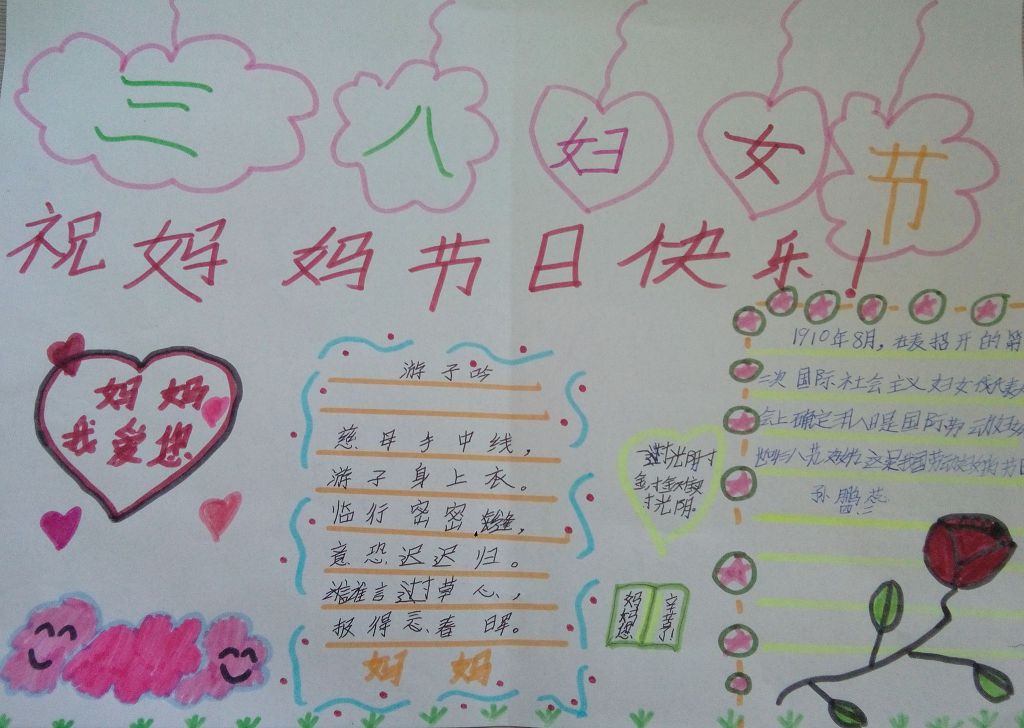 三八妇女节
祝妈妈节日快乐！
妈妈
我爱您
游子吟
慈母手中线，
游子身上衣。
临行密密缝，
意恐迟迟归。
谁言寸草心，
报得春晖。
妈妈
一寸光阴一寸
金，寸金难买
寸光阴。
妈妈您
辛苦了！
1910年8月，在 召开的第
二次国际社会主义妇女代表
会上确定三月八日是国际劳动妇女
三八 这是我国劳动妇女的节日
孙鹏蕊
四.三